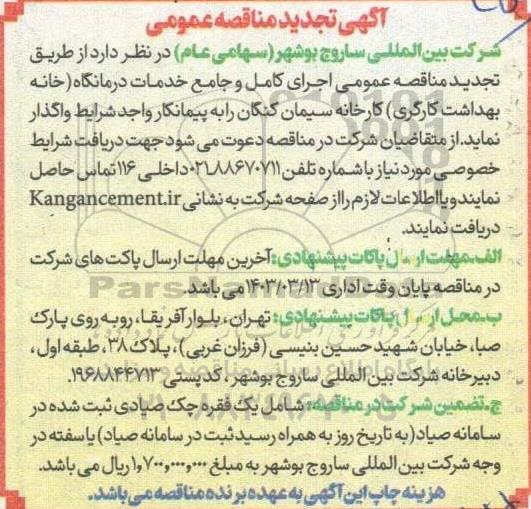 آگهی تجدید مناقصه عمومی
شرکت بین المللی ساروج بوشهر (سهامی عام) در نظر دارد از طریق
تجدید مناقصه عمومی اجرای کامل و جامع خدمات درمانگاه (خانه
بهداشت کارگری) کارخانه سیمان کنگان را به پیمانکار واجد شرایط واگذار
نماید. از متقاضیان شرکت در مناقصه دعوت می شود جهت دریافت شرایط
خصوصی مورد نیاز با شماره تلفن ۰۲۱۸۸۶۷۰۷۱۱ داخلی ۱۱۶ تماس حاصل
نمایند و یا اطلاعات لازم را از صفحه شرکت به نشانی Kangancement.ir
دریافت نمایند.
الف. مهلت ارسال پاکات پیشنهادی: آخرین مهلت ارسال پاکت های شرکت
در مناقصه پایان وقت اداری ۱۴۰۳/۰۳/۱۳ می باشد.
ب. محل ارسال پاکات پیشنهادی: تهران، بلوار آفریقا، روبه روی پارک
صبا، خیابان شهید حسین بنیسی (فرزان غربی)، پلاک ۳۸، طبقه اول،
دبیرخانه شرکت بین المللی ساروج بوشهر، کدپستی ۱۹۶۸۸۴۴۷۱۳.
ج. تضمین شرکت در مناقصه: شامل یک فقره چک صیادی ثبت شده در
سامانه صیاد (به تاریخ روز به همراه رسید ثبت در سامانه صیاد) یا سفته در
وجه شرکت بین المللی ساروج بوشهر به مبلغ ۱,۷۰۰,۰۰۰,۰۰۰ ریال می باشد.
هزینه چاپ این آگهی به عهده برنده مناقصه می باشد.